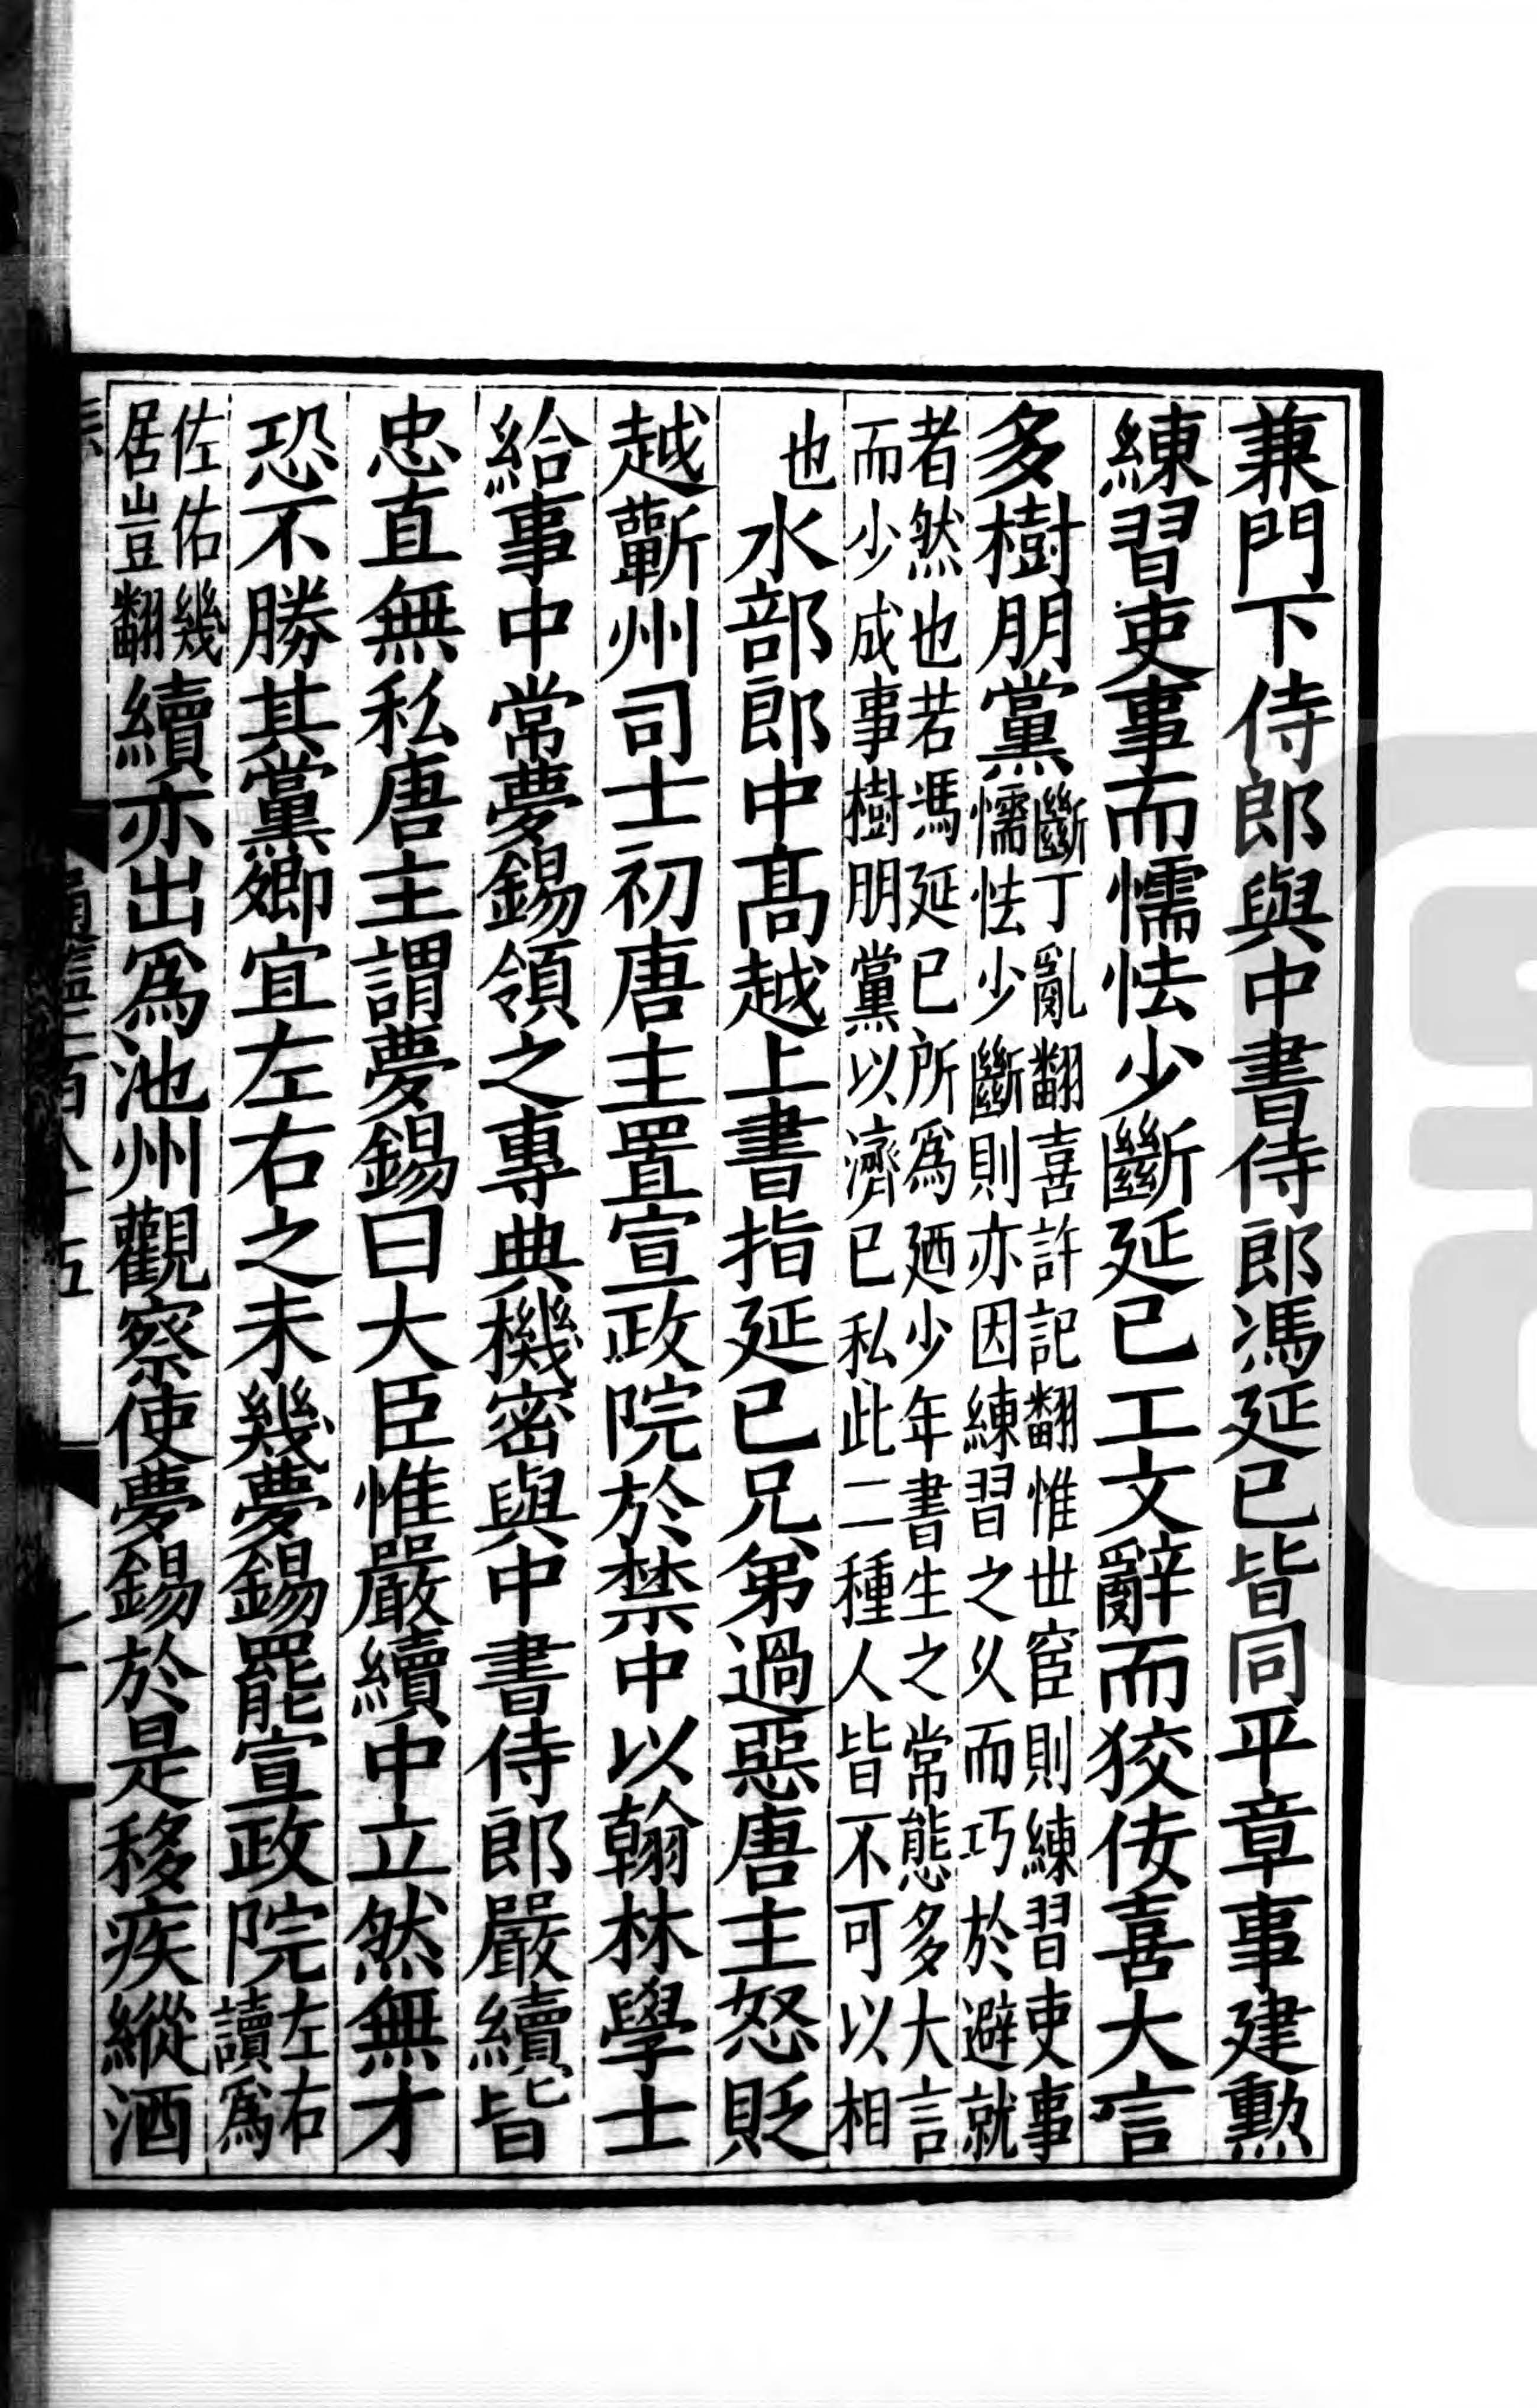 兼門下侍郎與中書侍郎馮延巳皆同平章事建勲
練習吏事而懦怯少斷延巳工文辭而狡佞喜大言
多樹朋黨斷丁亂翻喜許記翻惟世宦則練習吏事
懦怯少斷則亦因練習之乆而巧於避就
者然也若馮延巳所爲廼少年書生之常態多大言
而少成事樹朋黨以濟已私此二種人皆不可以相
也水部郎中髙越上書指延巳兄弟過惡唐主怒貶
越蘄州司士初唐主置宣政院於禁中以翰林學士
給事中常夢錫領之專典機密與中書侍郎嚴續皆
忠直無私唐主謂夢錫曰大臣惟嚴續中立然無才
恐不勝其黨卿宜左右之未幾夢錫罷宣政院左右
讀爲
佐佑幾
居豈翻續亦出爲池州觀察使夢錫於是移疾縱酒